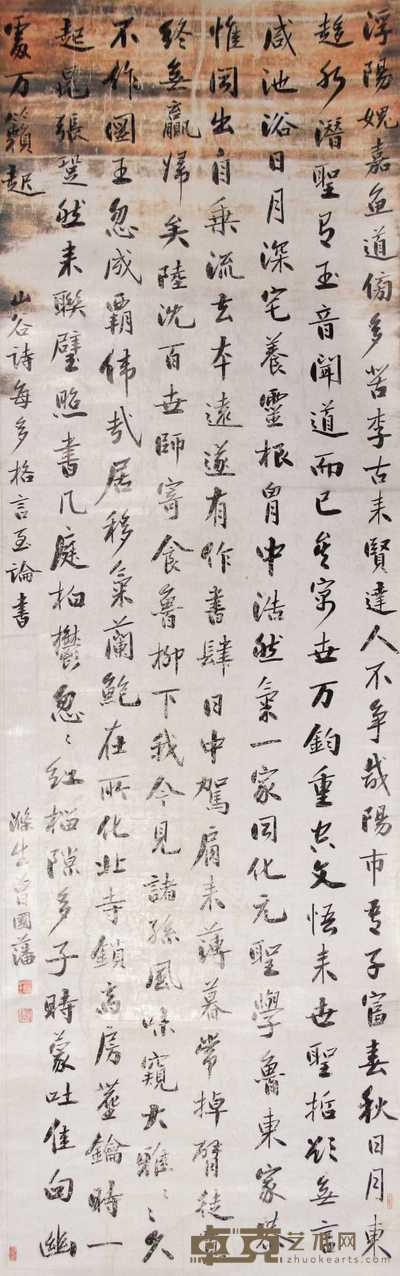 浮陽媿嘉魚道傍多苦李古來賢達人不爭咸陽市有子富春秋日月東
趨水潛聖有玉音聞道而已矣寥寥世万鈞重空文悟來世聖哲欲無言
咸池浴日月深宅養靈根胷中浩然氣一家同化元聖學魯東家恭
惟同出自乘流去本遠遂有作書肆日中駕肩來薄暮常掉臂徒
終無贏歸矣陸沈百世師寄食魯柳下我今見諸孫風味窺大雅
不作圖王忽成霸偉哉居移氣蘭鮑在所化北寺鎖高房蓋鑰時一
起昆張跫然來聯璧照書几庭柏鬱忽忽紅榴隙多子時蒙吐佳句幽
處万籟起
山谷詩每多格言至論書
滌生曾國藩
艺术网
zhuokearts.com